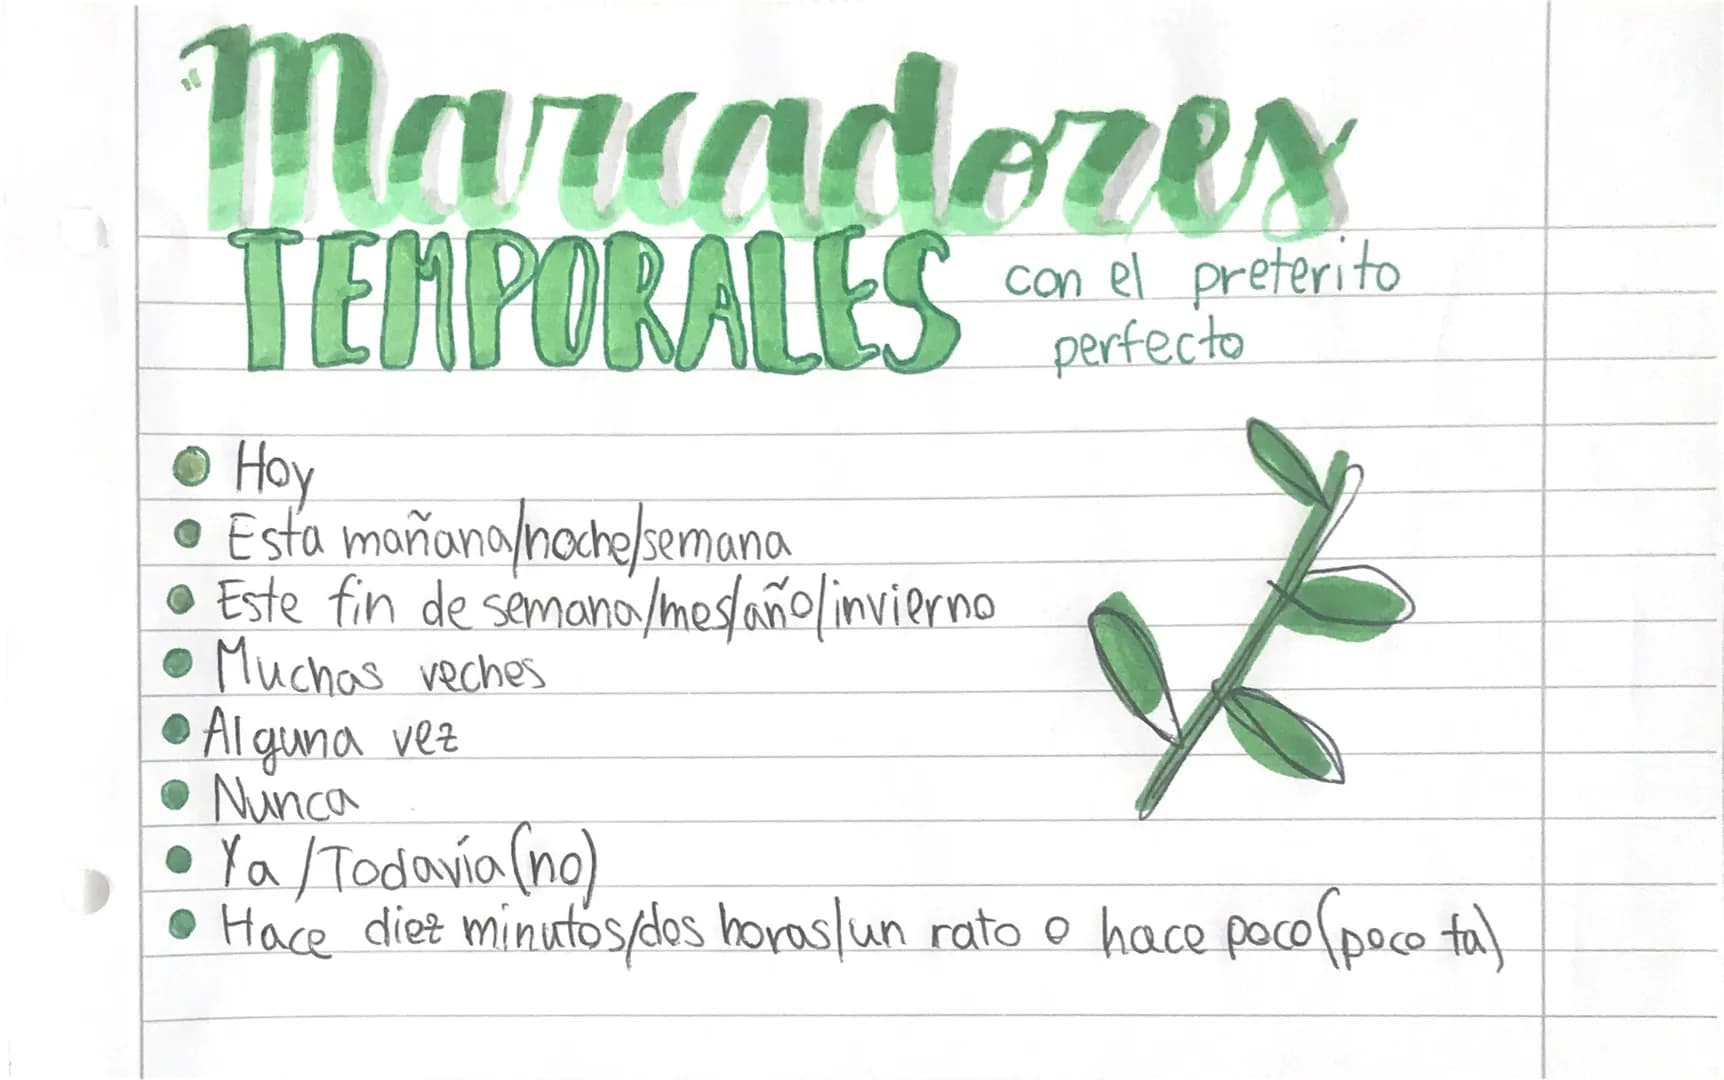 Marcadores
TEMPORALES con el preterito
perfecto
Hoy
Esta mañana/noche/semana
Este fin de semana/mes/año/invierno
Muchas veches
Alguna vez
Nunca
Ya/Todavía (no)
Hace diez minutos/dos horas/un rato o hace poco (poco ta)